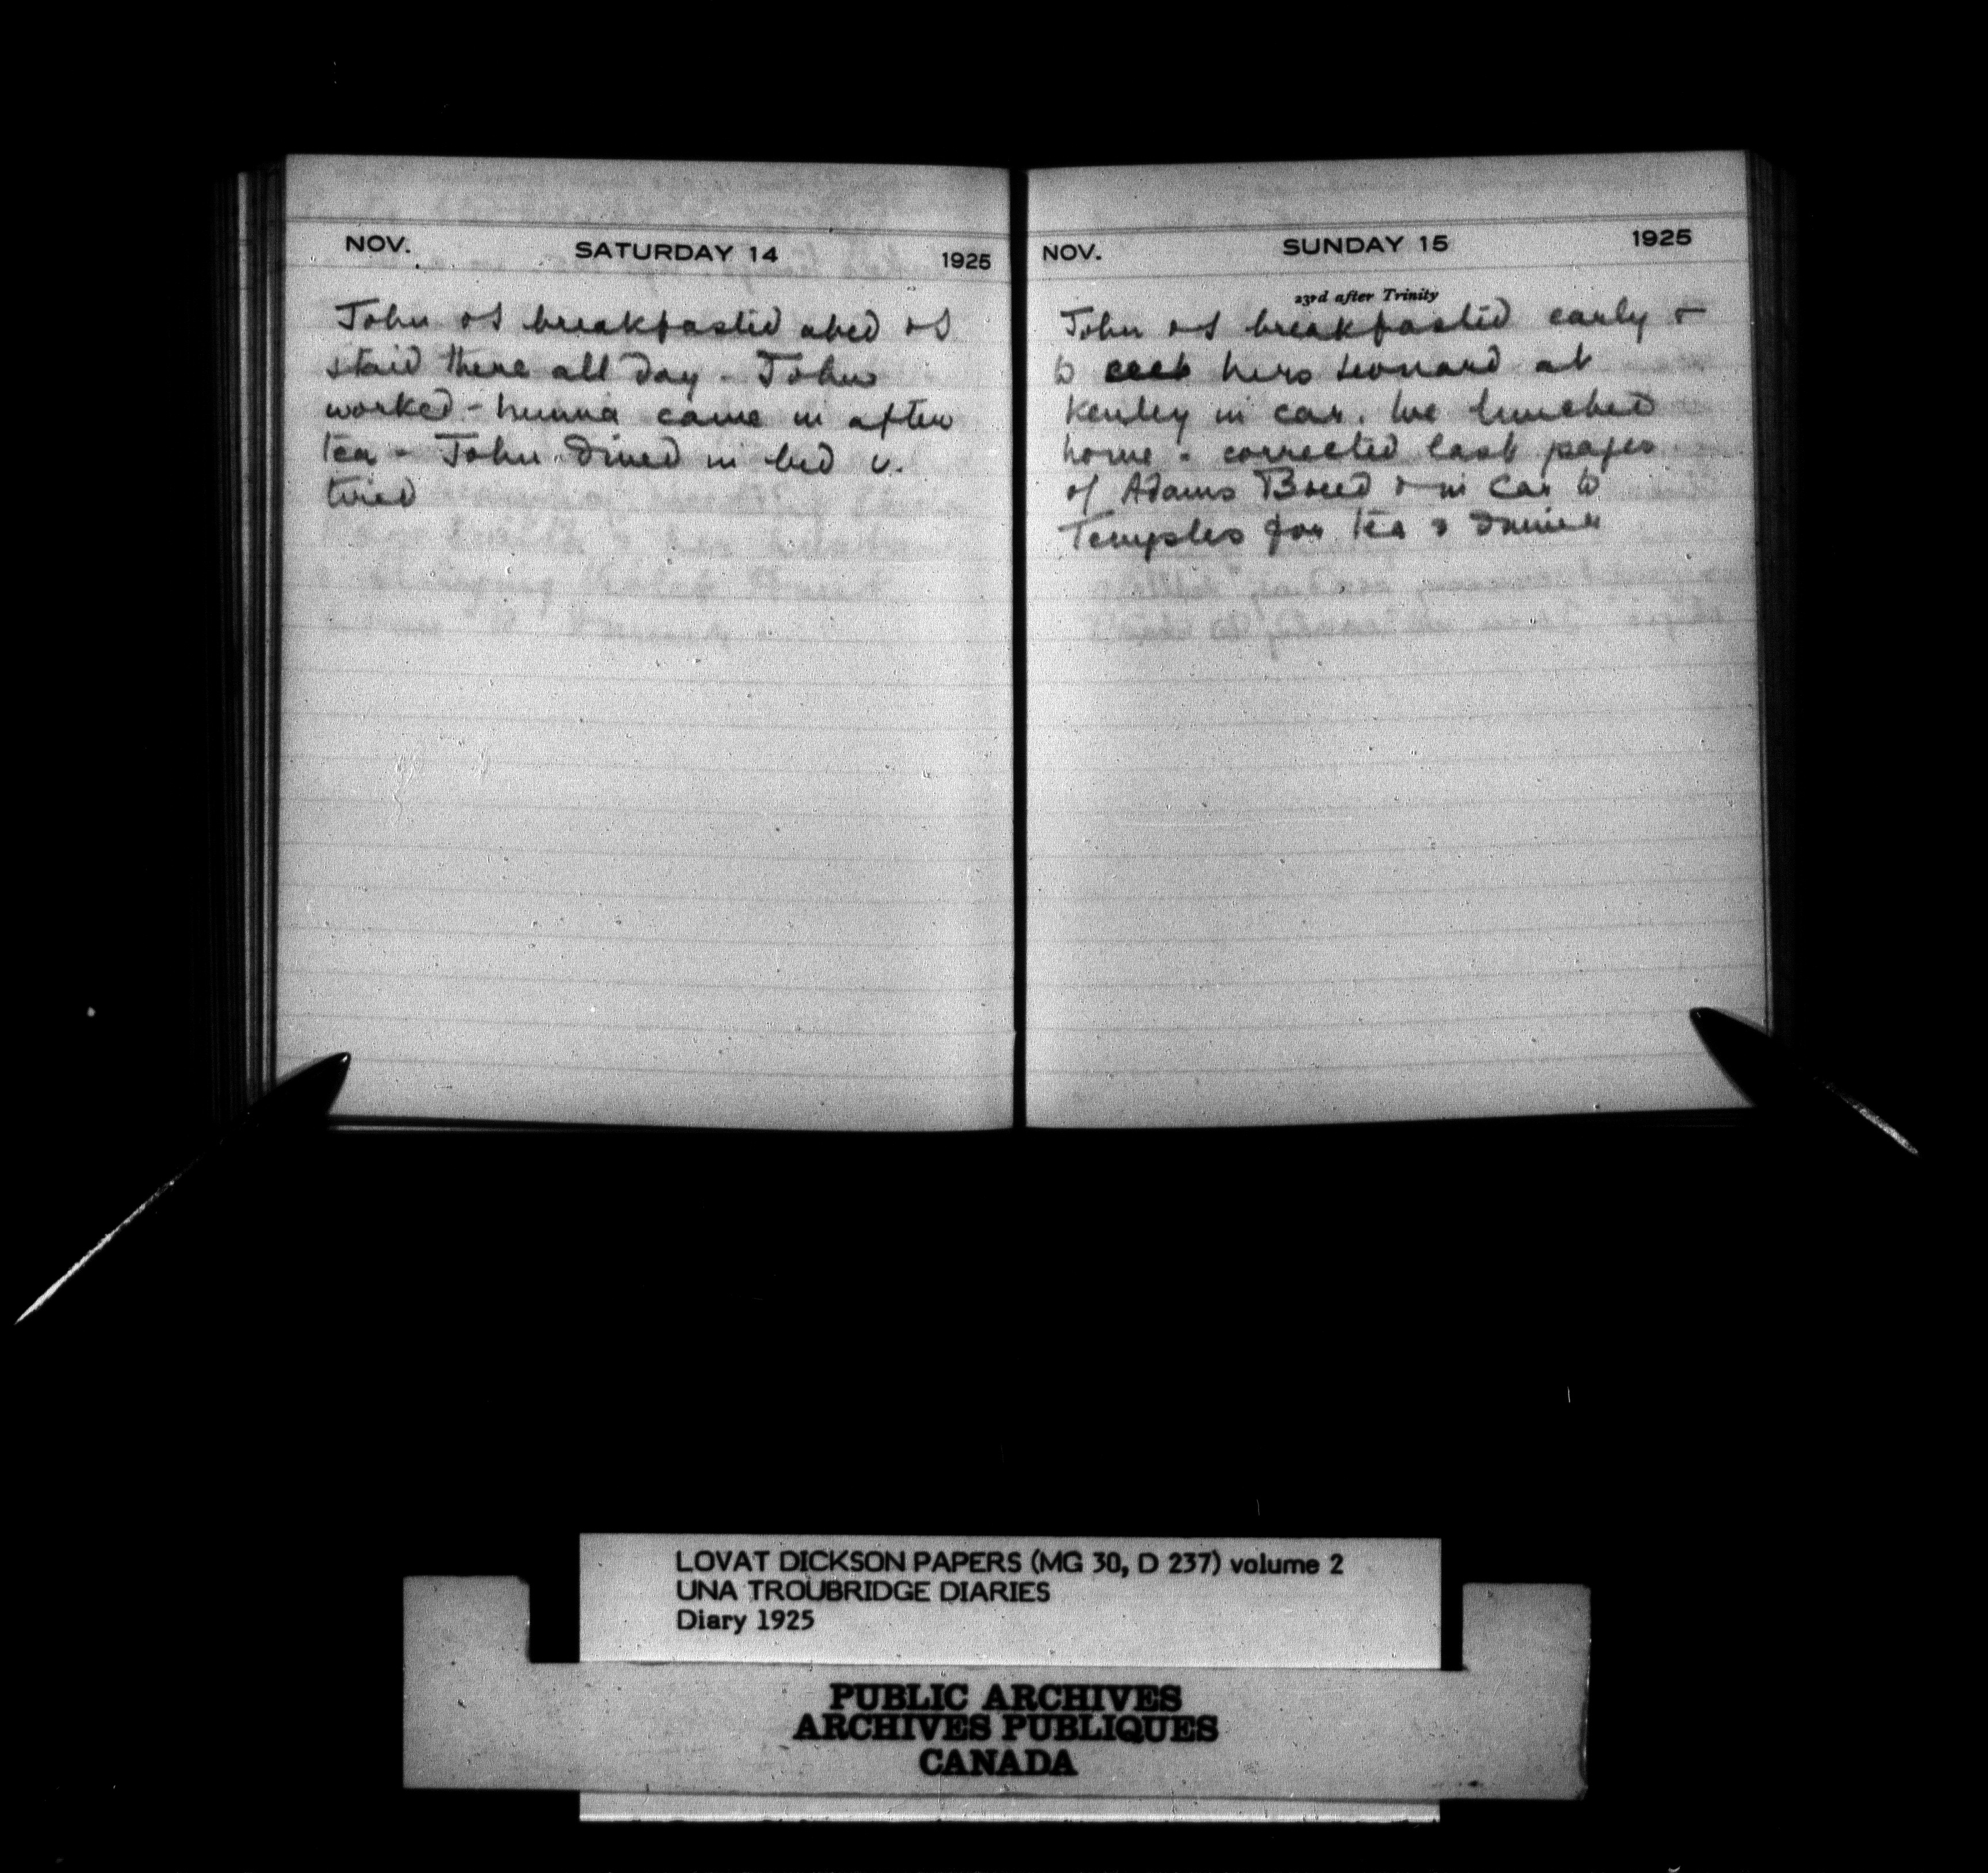 NOV. SATURDAY 14 1925
John & I breakfasted abed & I
staid there all day - John
worked - Minna came in after
tea - John dined in bed v.
tired
NOV. SUNDAY 15 1925
23rd after Trinity
John & I breakfasted early &
to Mrs Leonard at
Kenley in car. We lunched
home - corrected last pages
of Adams Breed & in car to
Temples for tea & dinner
LOVAT DICKSON PAPERS (MG 30, D 237) volume 2
UNA TROUBRIDGE DIARIES
Diary 1925
PUBLIC ARCHIVES
ARCHIVES PUBLIQUES
CANADA